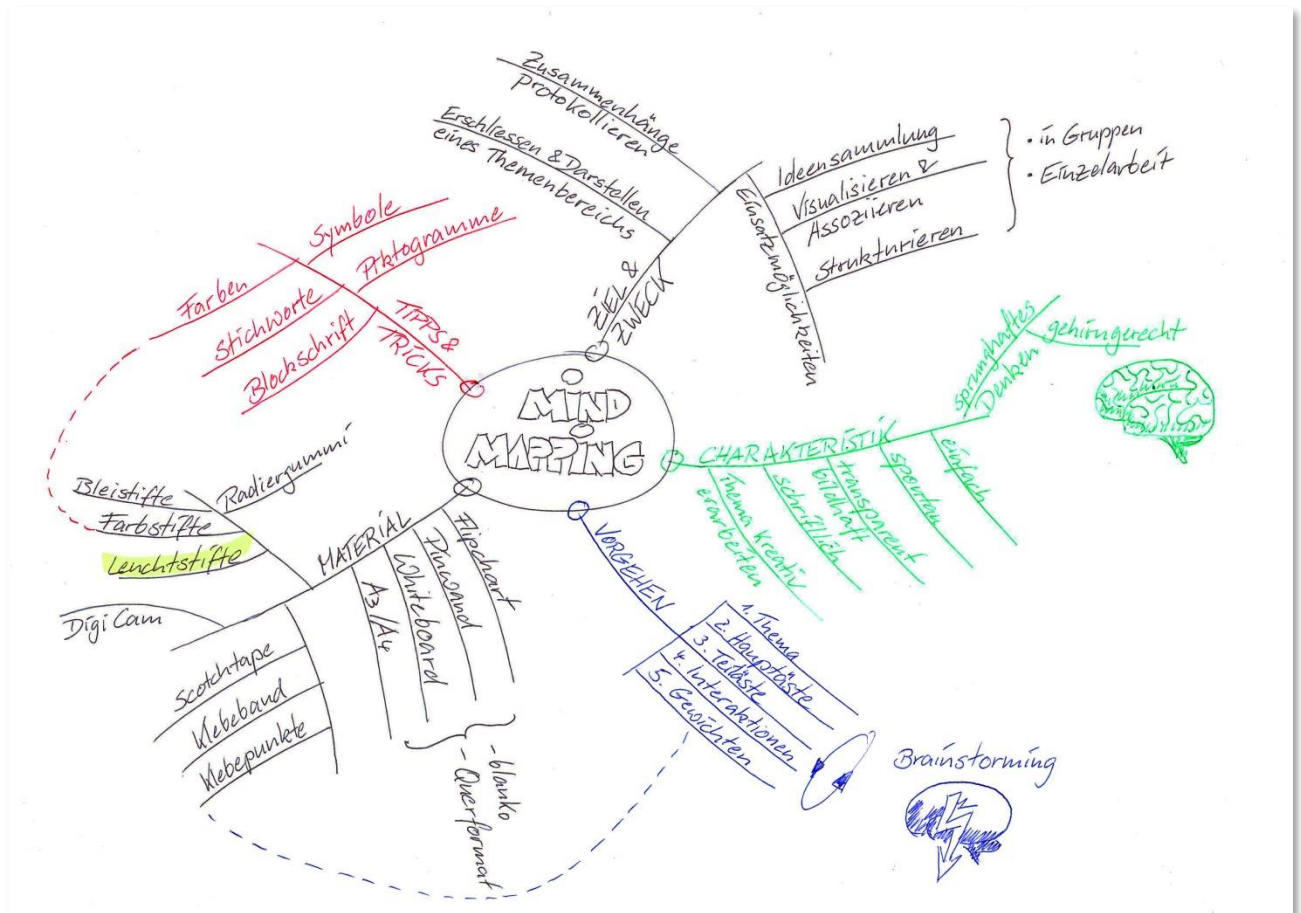 MIND
MAPPING
ZIEL &
ZWECK
Zusammenhänge
protokollieren
Erschliessen & Darstellen
eines Themenbereichs
Einsatzmöglichkeiten
Ideensammlung
Visualisieren &
Assoziieren
Strukturieren
• in Gruppen
• Einzelarbeit
CHARAKTERISTIK
sprunghaftes
Denken
gehirngerecht
einfach
spontan
transparent
bildhaft
schriftlich
Thema kreativ
erarbeiten
VORGEHEN
1. Thema
2. Hauptäste
3. Teiläste
4. Interaktionen
5. Gewichten
Brainstorming
MATERIAL
Flipchart
Pinwand
Whiteboard
A3/A4
- blanko
- Querformat
Radiergummi
Bleistifte
Farbstifte
Leuchtstifte
Digi Cam
Scotchtape
Klebeband
Klebepunkte
TIPPS &
TRICKS
Symbole
Farben
Piktogramme
Stichworte
Blockschrift